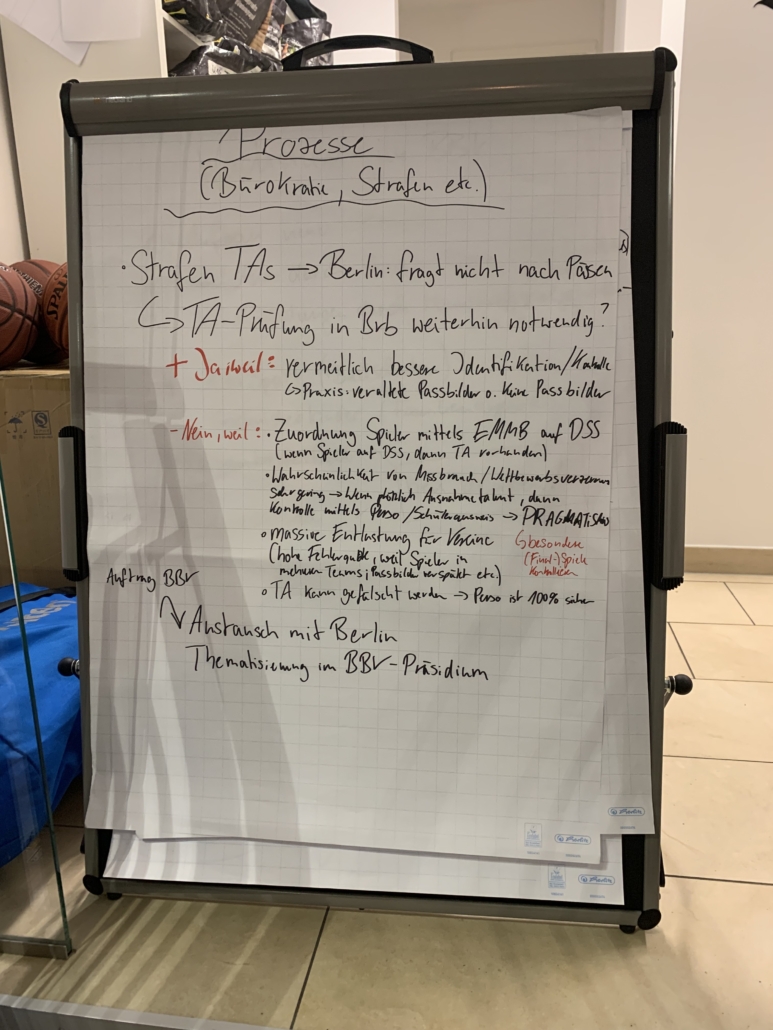 Prozesse
(Bürokratie, Strafen etc.)
· Strafen TAs → Berlin: fragt nicht nach Pässen
↳ TA-Prüfung in Brb weiterhin notwendig?
+ Ja, weil: vermeitlich bessere Identifikation/Kontrolle
↳ Praxis: veraltete Passbilder o. keine Passbilder
- Nein, weil: · Zuordnung Spieler mittels EMMB auf DSS
(wenn Spieler auf DSS, dann TA vorhanden)
· Wahrscheinlichkeit von Missbrauch/Wettbewerbsverzerrung
sehr gering → Wenn plötzlich Ausnahmetalent, dann
Kontrolle mittels Perso/Schülerausweis → PRAGMATISMUS
· massive Entlastung für Vereine
(hohe Fehlerquote, weil Spieler in
mehreren Teams, Passbilder verspätet etc.)
↳ besondere
(Final-)Spiele
kontrollieren
· TA kann gefälscht werden → Perso ist 100% sicher
Auftrag BBV
↳ Austausch mit Berlin
Thematisierung im BBV-Präsidium
SPAL